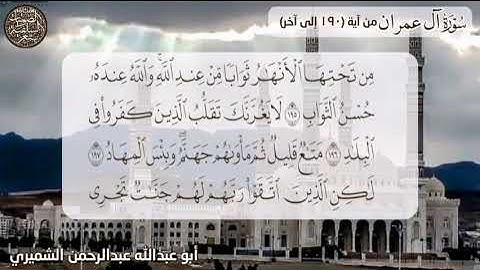 سُورَةُ آلِ عِمْرَان من آية (١٩٠ إلى آخر)
مِن تَحْتِهَا ٱلْأَنْهَٰرُ ثَوَابًا مِّنْ عِندِ ٱللَّهِ وَٱللَّهُ عِندَهُۥ
حُسْنُ ٱلثَّوَابِ ١٩٥ لَا يَغُرَّنَّكَ تَقَلُّبُ ٱلَّذِينَ كَفَرُوا۟ فِى
ٱلْبِلَٰدِ ١٩٦ مَتَٰعٌ قَلِيلٌ ثُمَّ مَأْوَىٰهُمْ جَهَنَّمُ وَبِئْسَ ٱلْمِهَادُ ١٩٧
لَٰكِنِ ٱلَّذِينَ ٱتَّقَوْا۟ رَبَّهُمْ لَهُمْ جَنَّٰتٌ تَجْرِى
أبو عبدالله عبدالرحمن الشميري